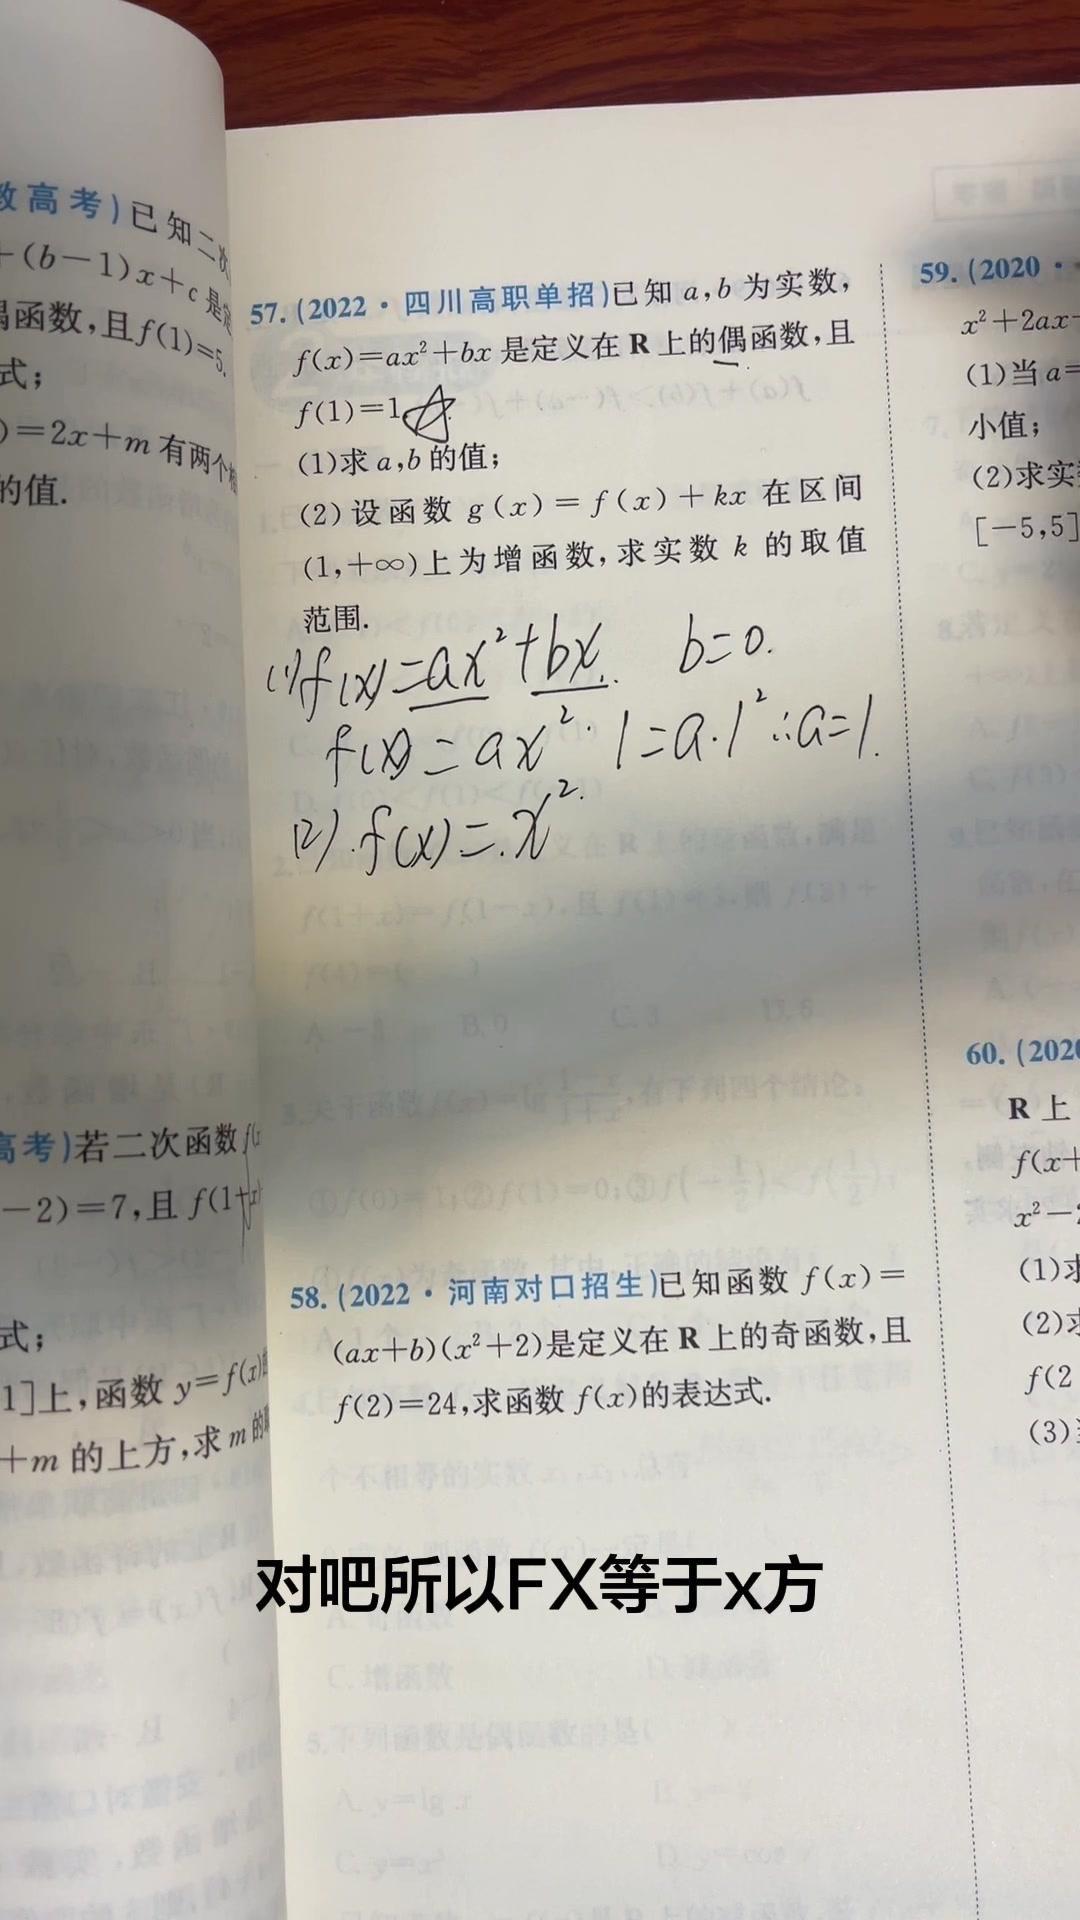 数高考)已知二次
+(b−1)x+c是定
偶函数,且f(1)=5.
式;
)=2x+m有两个相
的值.
高考)若二次函数f(x
−2)=7,且f(1+x)
式;
1]上,函数y=f(x)的
+m的上方,求m的取
57.(2022·四川高职单招)已知a,b为实数,
f(x)=ax²+bx是定义在R上的偶函数,且
f(1)=1
(1)求a,b的值;
(2)设函数g(x)=f(x)+kx在区间
(1,+∞)上为增函数,求实数k的取值
范围.
(1)f(x)=ax²+bx. b=0.
f(x)=ax². 1=a·1²∴a=1.
(2).f(x)=.x².
58.(2022·河南对口招生)已知函数f(x)=
(ax+b)(x²+2)是定义在R上的奇函数,且
f(2)=24,求函数f(x)的表达式.
59.(2020·
x²+2ax
(1)当a=
小值;
(2)求实
[−5,5]
60.(2020
R上
f(x+
x²−
(1)求
(2)求
f(2
(3)
对吧所以FX等于x方